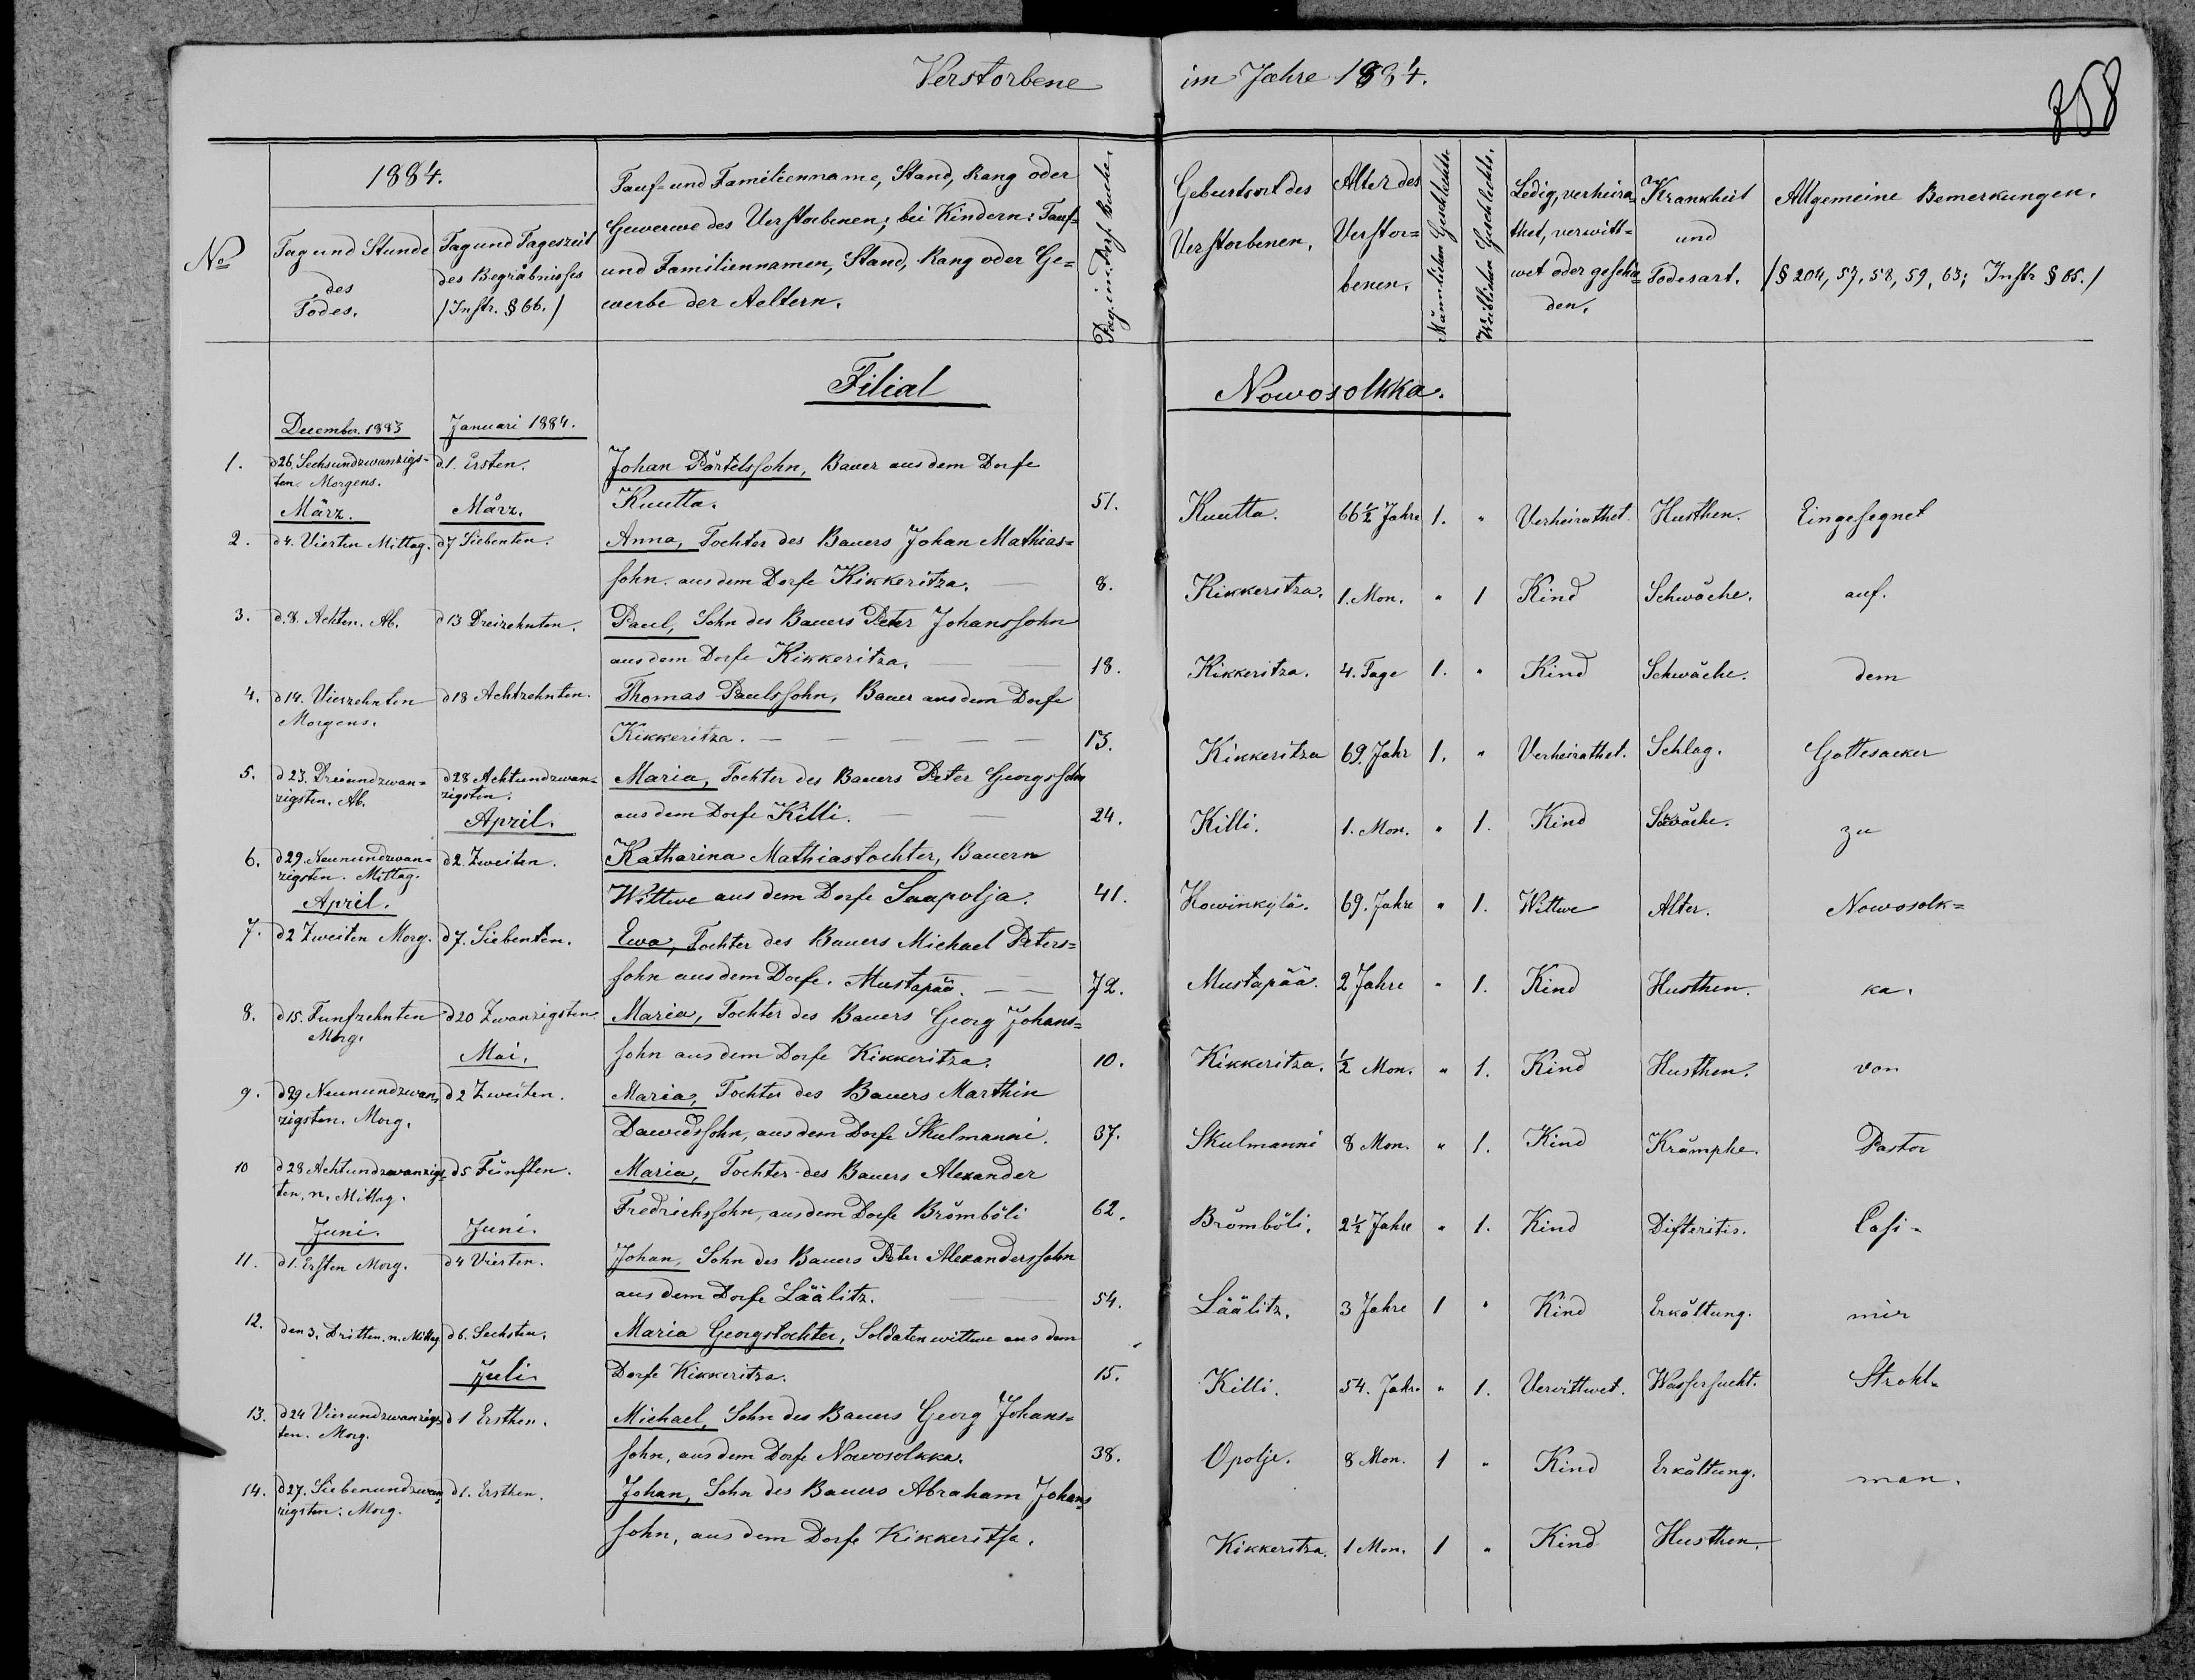 Verstorbene im Jahre 1884.
358
№
1884.
Tag und Stunde des Todes.
Tag und Tageszeit des Begräbnisses /Instr. § 66./
Tauf- und Familienname, Stand, Rang oder
Gewerwe des Verstorbenen; bei Kindern: Tauf=
und Familiennamen, Stand, Rang oder Ge=
werbe der Aeltern.
Pag. im Pers. Buche.
Geburtsort des Verstorbenen.
Alter des Verstor=benen.
Männlichen Geschlechts.
Weiblichen Geschlechts.
Ledig, verheira=thet, verwitt=wet oder geschie=den.
Krankheit und Todesart.
Allgemeine Bemerkungen.
/§ 204, 57, 58, 59, 63; Instr § 65./
Filial Nowosolkka.
December. 1883 Januari 1884.
1. d 26. Sechsundzwanzigs= d. 1. Ersten. Johan Pärtelssohn, Bauer aus dem Dorfe
ten. Morgens.
Kuutta. 51. Kuutta. 66 ½ Jahre 1. " Verheirathet. Husthen. Eingesegnet
März. März.
2. d 4. Vierten Mittag. d 7 Siebenten. Anna, Tochter des Bauers Johan Mathias=
sohn. aus dem Dorfe Kikkeritza. 8. Kikkeritza. 1. Mon. " 1 Kind Schwäche. auf.
3. d. 8. Achten. Ab. d 13 Dreizehnten. Paul, Sohn des Bauers Peter Johanssohn
aus dem Dorfe Kikkeritza. 18. Kikkeritza. 4. Tage 1. " Kind Schwäche. dem
4. d 14. Vierzehnten d 18 Achtzehnten. Thomas Paulssohn, Bauer aus dem Dorfe
Morgens.
Kikkeritza. 13. Kikkeritza 69. Jahr 1. " Verheirathet. Schlag. Gottesacker
5. d 23. Dreiundzwan= d 28 Achtundzwan= Maria, Tochter des Bauers Peter Georgssohn
zigsten. Ab. zigsten.
aus dem Dorfe Killi. 24. Killi. 1. Mon. " 1. Kind Schwäche. zu
April.
6. d 29. Neunundzwan= d 2. Zweiten. Katharina Mathiastochter, Bauern
zigsten. Mittag.
Wittwe aus dem Dorfe Saapolja. 41. Howinkylä. 69. Jahre " 1. Wittwe Alter. Nowosolk=
April.
7. d 2 Zweiten Morg. d 7. Siebenten. Ewa, Tochter des Bauers Michael Peters=
sohn aus dem Dorfe. Mustapää. 72. Mustapää. 2 Jahre " 1. Kind Husthen. ka.
8. d 15. Funfzehnten d 20 Zwanzigsten. Maria, Tochter des Bauers Georg Johans=
Morg.
Mai.
sohn aus dem Dorfe Kikkeritza. 10. Kikkeritza. ½ Mon. " 1. Kind Husthen. von
9. d 29 Neunundzwan= d 2 Zweiten. Maria, Tochter des Bauers Marthin
zigsten. Morg.
Dawidssohn, aus dem Dorfe Skulmanni. 37. Skulmanni 8 Mon. " 1. Kind Krämphe. Pastor
10 d 28 Achtundzwanzigs= d 5 Fünften. Maria, Tochter des Bauers Alexander
ten, n. Mittag.
Fredrichssohn, aus dem Dorfe Brömböli 62. Brömböli. 2 ½ Jahre " 1. Kind Difteritis. Casi-
Juni. Juni.
11. d 1. Ersten Morg. d 4 Vierten. Johan, Sohn des Bauers Peter Alexanderssohn
aus dem Dorfe Läälitz. 54. Läälitz. 3 Jahre 1 " Kind Erkältung. mir
12. den 3. Dritten. n. Mittag d 6. Sechsten. Maria Georgstochter, Soldatenwittwe aus dem
Dorfe Kikkeritza. 15. Killi. 54. Jahr. " 1. Verwittwet. Wassersucht. Strohl-
Juli
13. d 24 Vierundzwanzigs= d 1 Ersthen. Michael, Sohn des Bauers Georg Johans=
ten. Morg.
sohn, aus dem Dorfe Nowosolkka. 38. Opolje. 8 Mon. 1 " Kind Erkältung. man.
14. d 27. Siebenundzwan= d 1. Ersthen. Johan, Sohn des Bauers Abraham Johans
zigsten. Morg.
sohn, aus dem Dorfe Kikkeritsa. Kikkeritza. 1 Mon. 1 " Kind Husthen.